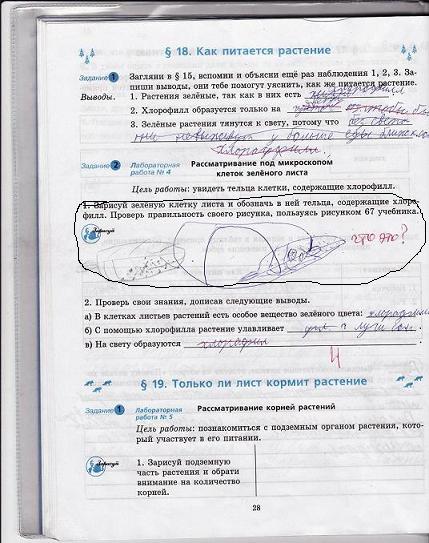 § 18. Как питается растение
Задание 1 Загляни в § 15, вспомни и объясни ещё раз наблюдения 1, 2, 3. За-
пиши выводы, они тебе помогут уяснить, как же питается растение.
Выводы. 1. Растения зелёные, так как в них есть хлорофилл
2. Хлорофилл образуется только на
3. Зелёные растения тянутся к свету, потому что без света
они
Хлорофилл.
Задание 2 Лабораторная работа № 4
Рассматривание под микроскопом
клеток зелёного листа
Цель работы: увидеть тельца клетки, содержащие хлорофилл.
1. Зарисуй зелёную клетку листа и обозначь в ней тельца, содержащие хлоро-
филл. Проверь правильность своего рисунка, пользуясь рисунком 67 учебника.
Зарисуй
что это?
2. Проверь свои знания, дописав следующие выводы.
а) В клетках листьев растений есть особое вещество зелёного цвета: хлорофилл
б) С помощью хлорофилла растение улавливает лучи сол.
в) На свету образуются хлорофил
4
§ 19. Только ли лист кормит растение
Задание 1 Лабораторная работа № 5
Рассматривание корней растений
Цель работы: познакомиться с подземным органом растения, кото-
рый участвует в его питании.
Зарисуй
1. Зарисуй подземную
часть растения и обрати
внимание на количество
корней.
28